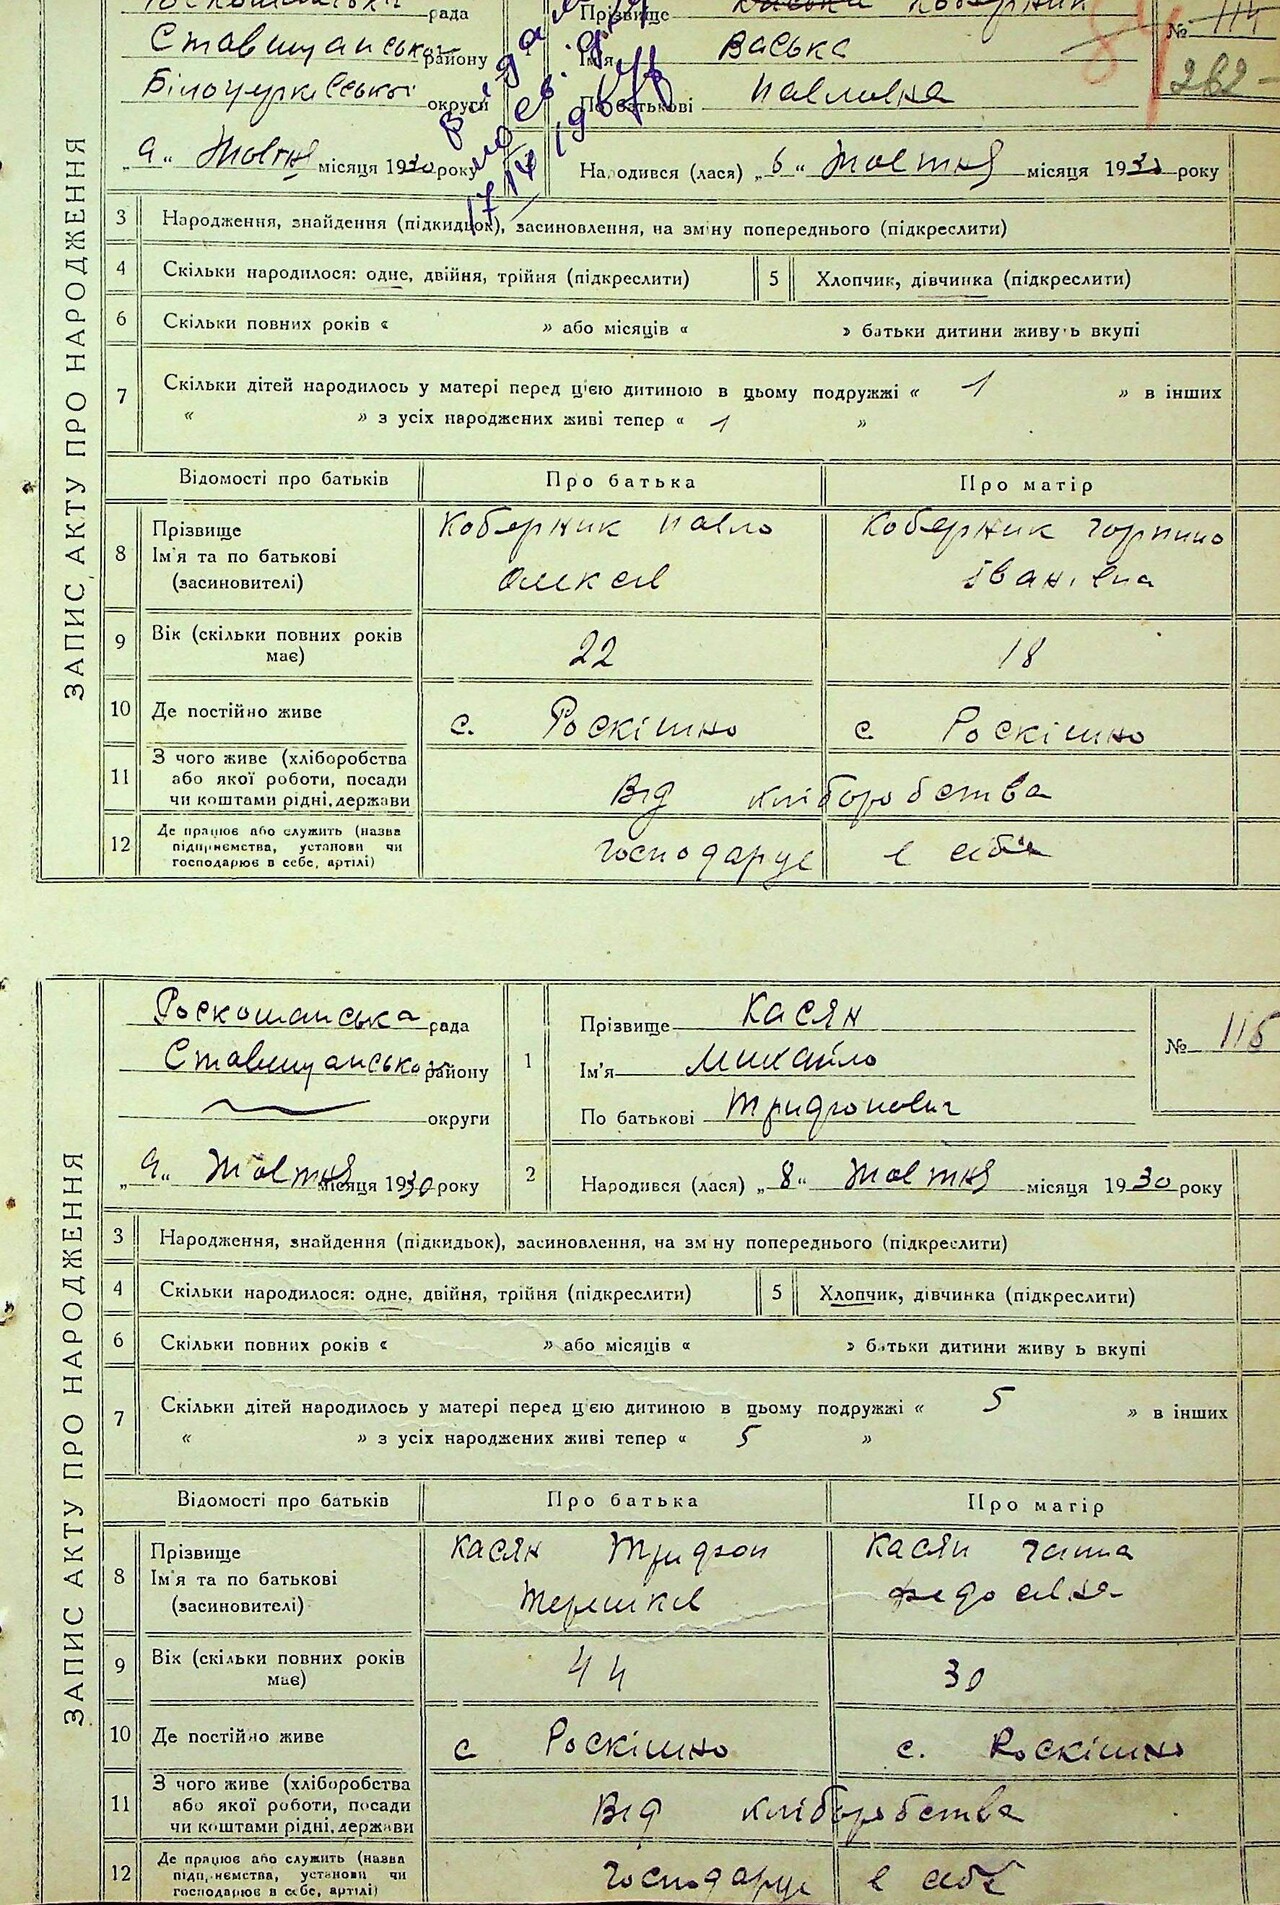 Роскошанська рада
Ставищанського району
Білоцерківської округи
„9“ Жовтня місяця 1930 року
Прізвище Коберник
Ім'я Васька
По батькові Павловна
№ 114
262
84
17.IV
Народився (лася) „6“ Жовтня місяця 1930 року
ЗАПИС АКТУ ПРО НАРОДЖЕННЯ
3 Народження, знайдення (підкидьок), засиновлення, на зміну попереднього (підкреслити)
4 Скільки народилося: одне, двійня, трійня (підкреслити) 5 Хлопчик, дівчинка (підкреслити)
6 Скільки повних років « » або місяців « » батьки дитини живуть вкупі
7 Скільки дітей народилось у матері перед цією дитиною в цьому подружжі « 1 » в інших
« » з усіх народжених живі тепер « 1 »
Відомості про батьків Про батька Про матір
8 Прізвище Ім'я та по батькові (засиновителі)
Коберник Павло Олексів
Коберник Горпина Іванівна
9 Вік (скільки повних років має) 22 18
10 Де постійно живе с. Роскішно с. Роскішно
11 З чого живе (хліборобства або якої роботи, посади чи коштами рідні, держави
Від хліборобства
12 Де працює або служить (назва підприємства, установи чи господарює в себе, артілі)
господарує в себе
ЗАПИС АКТУ ПРО НАРОДЖЕННЯ
Роскошанська рада
Ставищансько району
округи
„9“ Жовтня місяця 1930 року
1 Прізвище Касян
Ім'я Михайло
По батькові Тридгонович
№ 115
2 Народився (лася) „8“ Жовтня місяця 1930 року
3 Народження, знайдення (підкидьок), засиновлення, на зміну попереднього (підкреслити)
4 Скільки народилося: одне, двійня, трійня (підкреслити) 5 Хлопчик, дівчинка (підкреслити)
6 Скільки повних років « » або місяців « » батьки дитини живуть вкупі
7 Скільки дітей народилось у матері перед цією дитиною в цьому подружжі « 5 » в інших
« » з усіх народжених живі тепер « 5 »
Відомості про батьків Про батька Про матір
8 Прізвище Ім'я та по батькові (засиновителі)
Касян Тридгон Терешків
Касян Ганна Федосівна
9 Вік (скільки повних років має) 44 30
10 Де постійно живе с Роскішно с. Роскішно
11 З чого живе (хліборобства або якої роботи, посади чи коштами рідні, держави
Від хліборобства
12 Де працює або служить (назва підприємства, установи чи господарює в себе, артілі)
господарує в себе